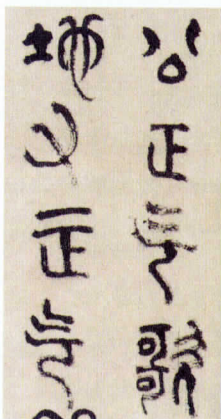 公正气歌
地又正气